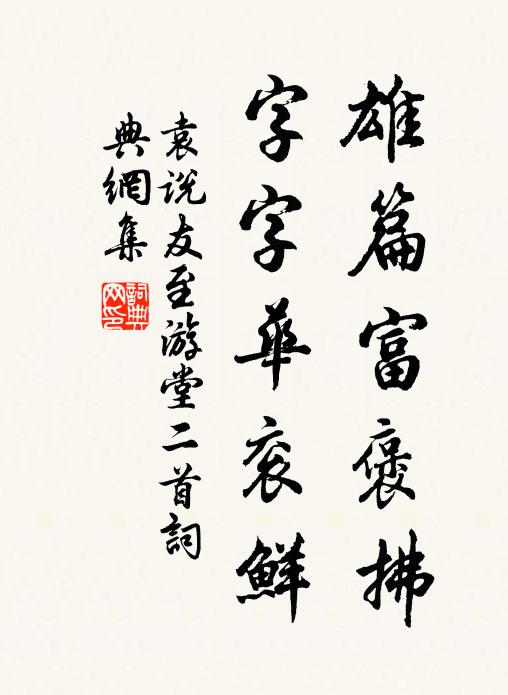 雄篇富褒拂
字字華衮鮮
袁説友至游堂二首詞
典網集
詞典網印